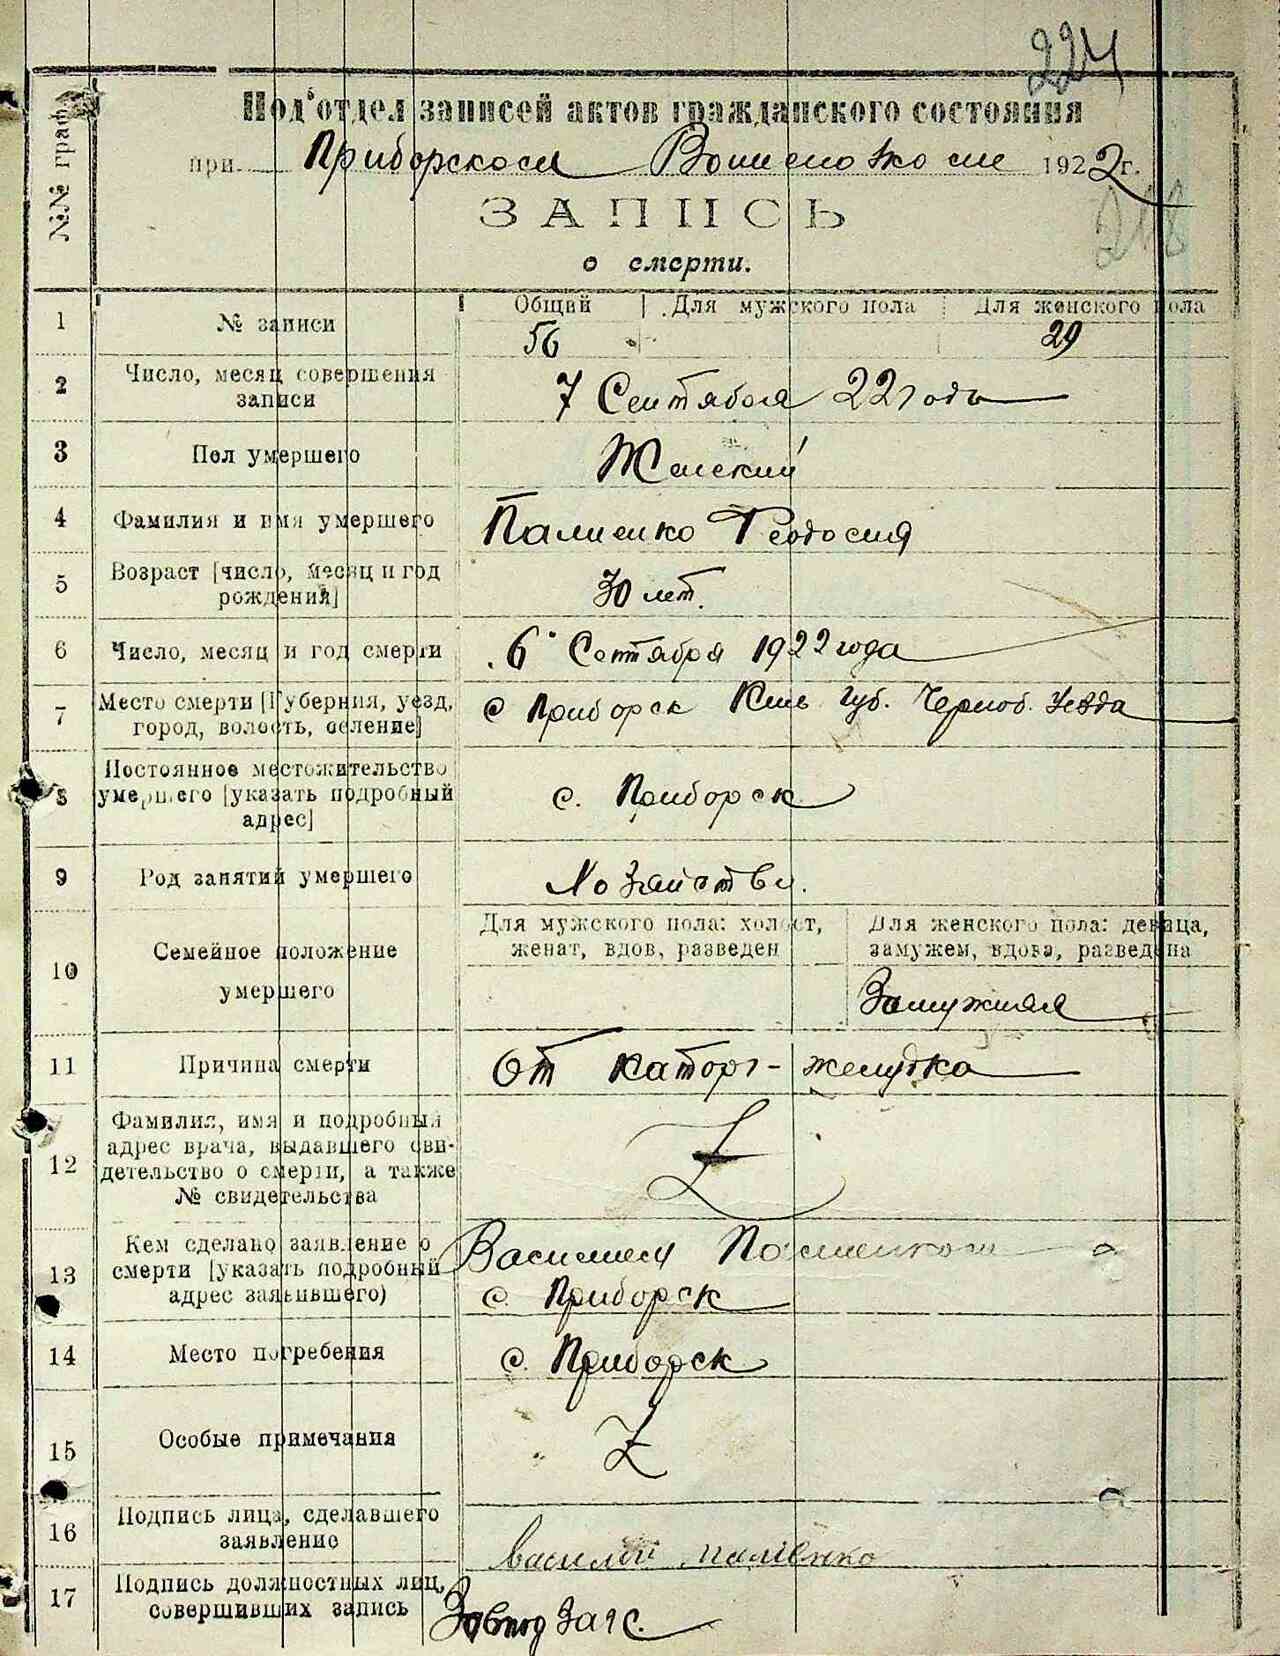 224
Под'отдел записей актов гражданского состояния
при Приборском Волисполкоме 1922 г.
218
№№ граф
ЗАПИСЬ
о смерти.
Общий Для мужского пола Для женского пола
1 № записи 56 29
2 Число, месяц совершения
записи
7 Сентября 22 года
3 Пол умершего Женский
4 Фамилия и имя умершего Палиенко Феодосия
5 Возраст [число, месяц и год
рождения]
30 лет.
6 Число, месяц и год смерти 6 Сентября 1922 года
7 Место смерти [Губерния, уезд,
город, волость, селение]
с Приборск Киев Губ. Черноб. Уезда
8 Постоянное местожительство
умершего [указать подробный
адрес]
с. Приборск
9 Род занятий умершего Хозяйство.
10 Семейное положение
умершего
Для мужского пола: холост,
женат, вдов, разведен
Для женского пола: девица,
замужем, вдова, разведена
Замужняя
11 Причина смерти От катора- желудка
12 Фамилия, имя и подробный
адрес врача, выдавшего сви-
детельство о смерти, а также
№ свидетельства
Z
13 Кем сделано заявление о
смерти [указать подробный
адрес заявившего)
Василием Палиенком
с. Приборск
14 Место погребения с. Приборск
15 Особые примечания Z
16 Подпись лица, сделавшего
заявление
василий палиенко
17 Подпись должностных лиц,
совершивших запись
Завпод Загс.